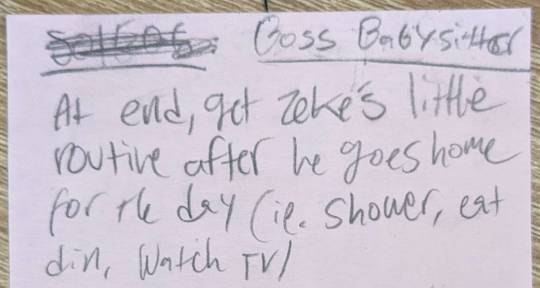 Boss Babysitter
At end, get Zeke's little
routine after he goes home
for the day (ie. shower, eat
din, Watch TV)